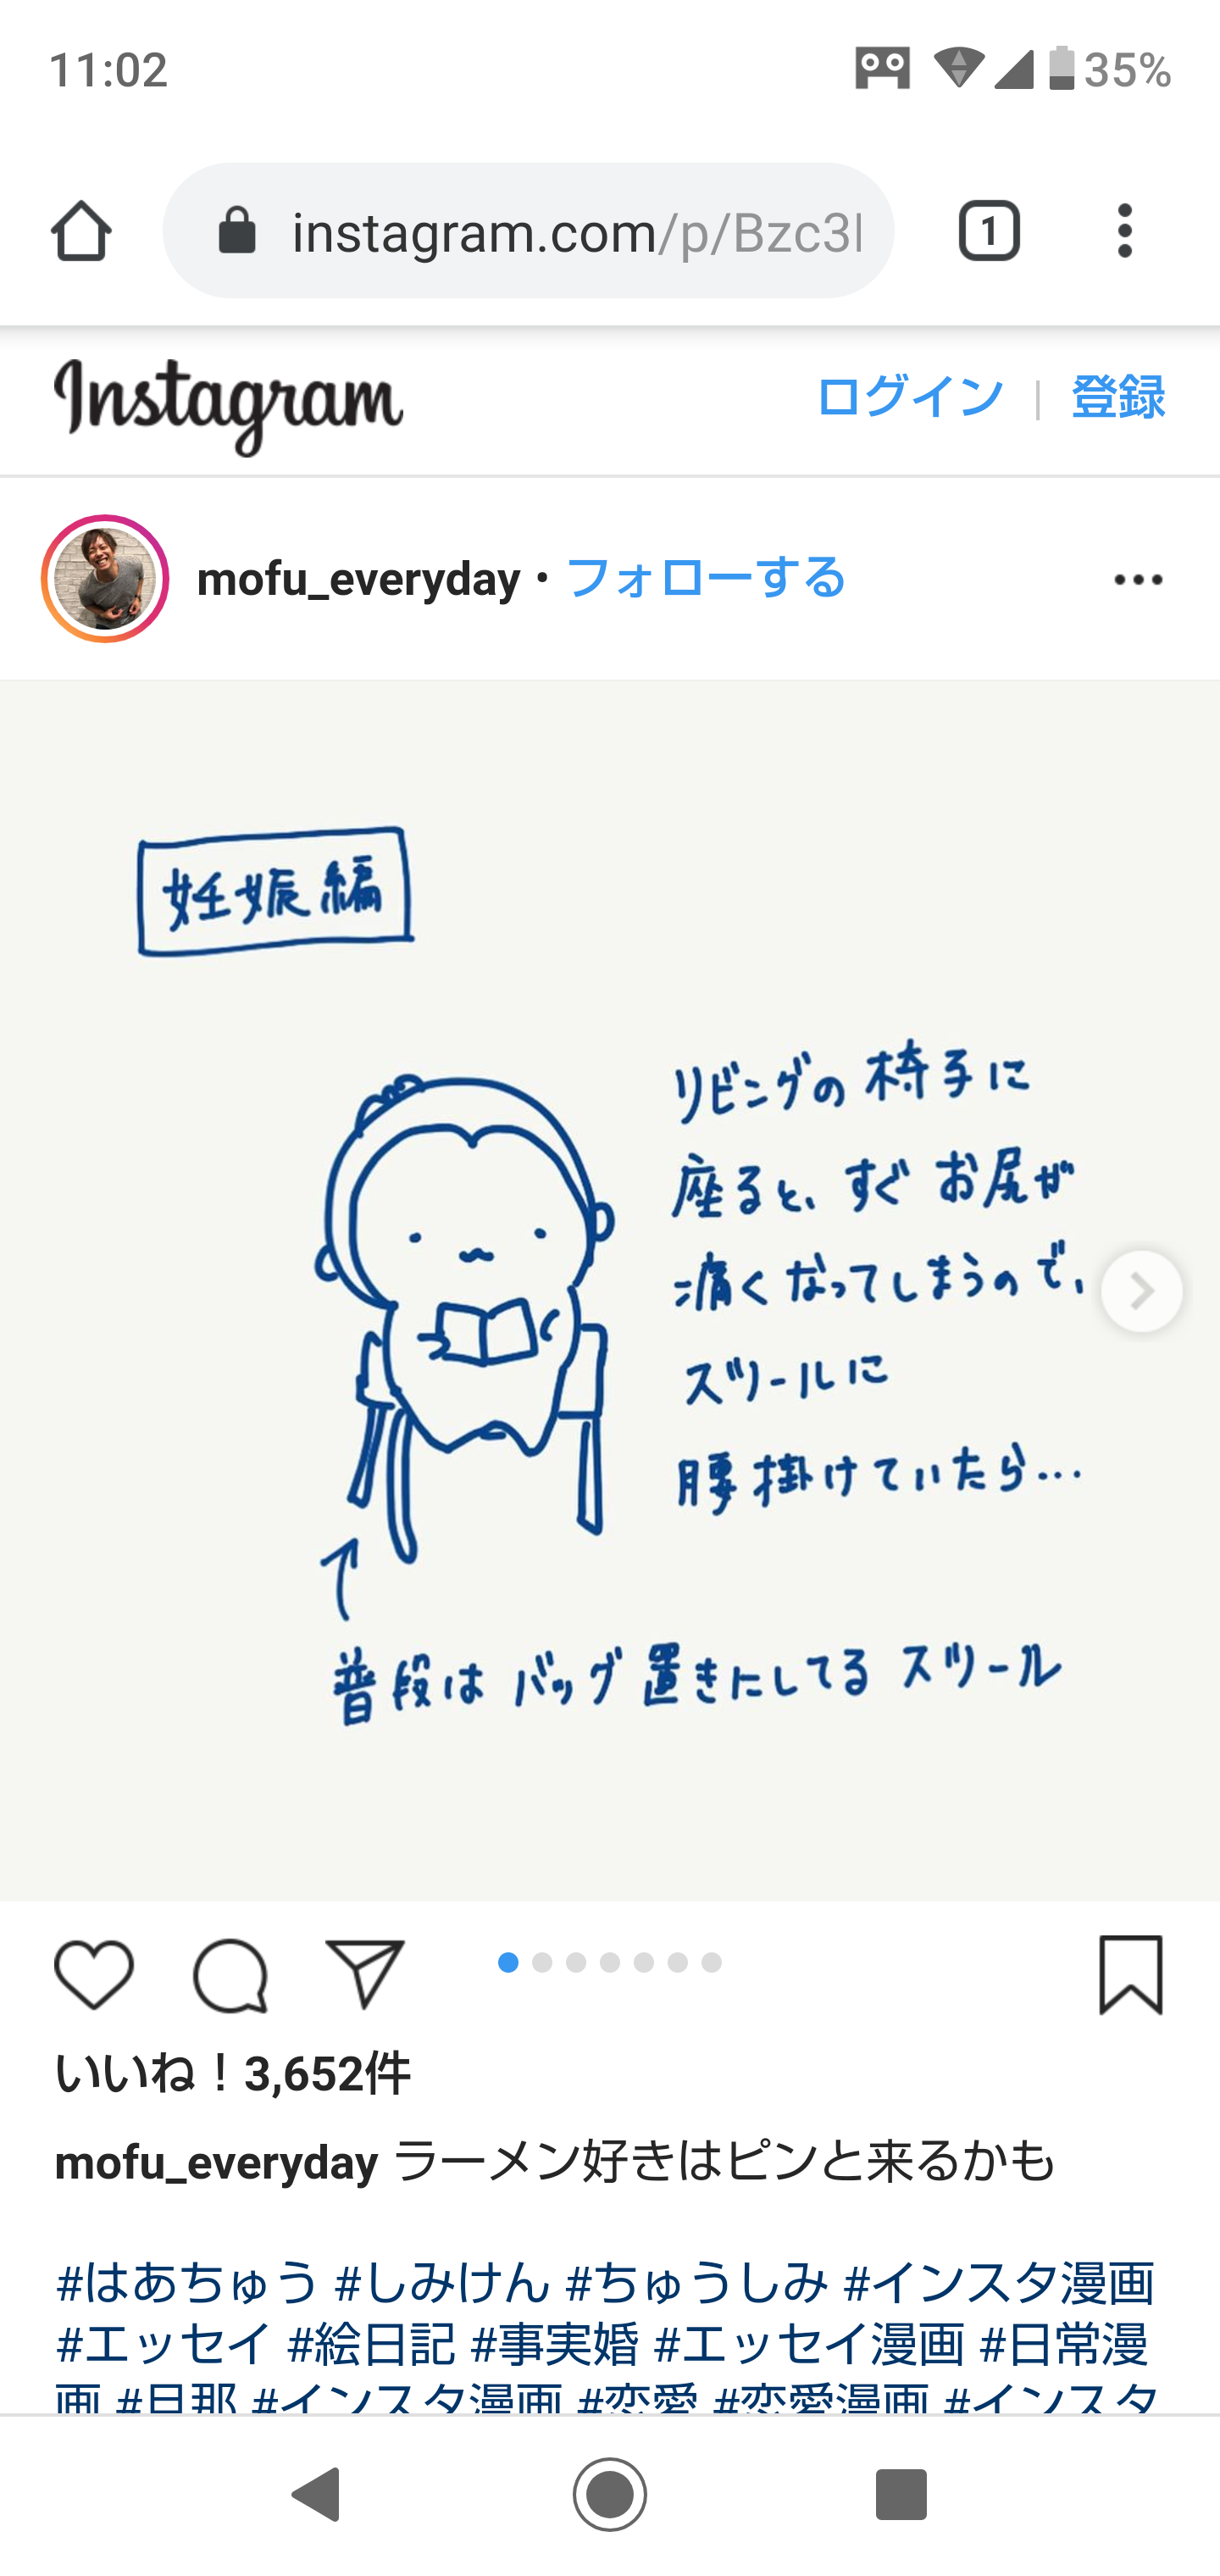 11:02
35%
instagram.com/p/Bzc3l
1
Instagram
ログイン | 登録
mofu_everyday • フォローする
妊娠編
リビングの椅子に
座ると、すぐお尻が
痛くなってしまうので、
スツールに
腰掛けていたら...
普段はバッグ置きにしてるスツール
いいね！3,652件
mofu_everyday ラーメン好きはピンと来るかも
#はあちゅう #しみけん #ちゅうしみ #インスタ漫画
#エッセイ #絵日記 #事実婚 #エッセイ漫画 #日常漫
画 #旦那 #インスタ漫画 #恋愛 #恋愛漫画 #インスタ